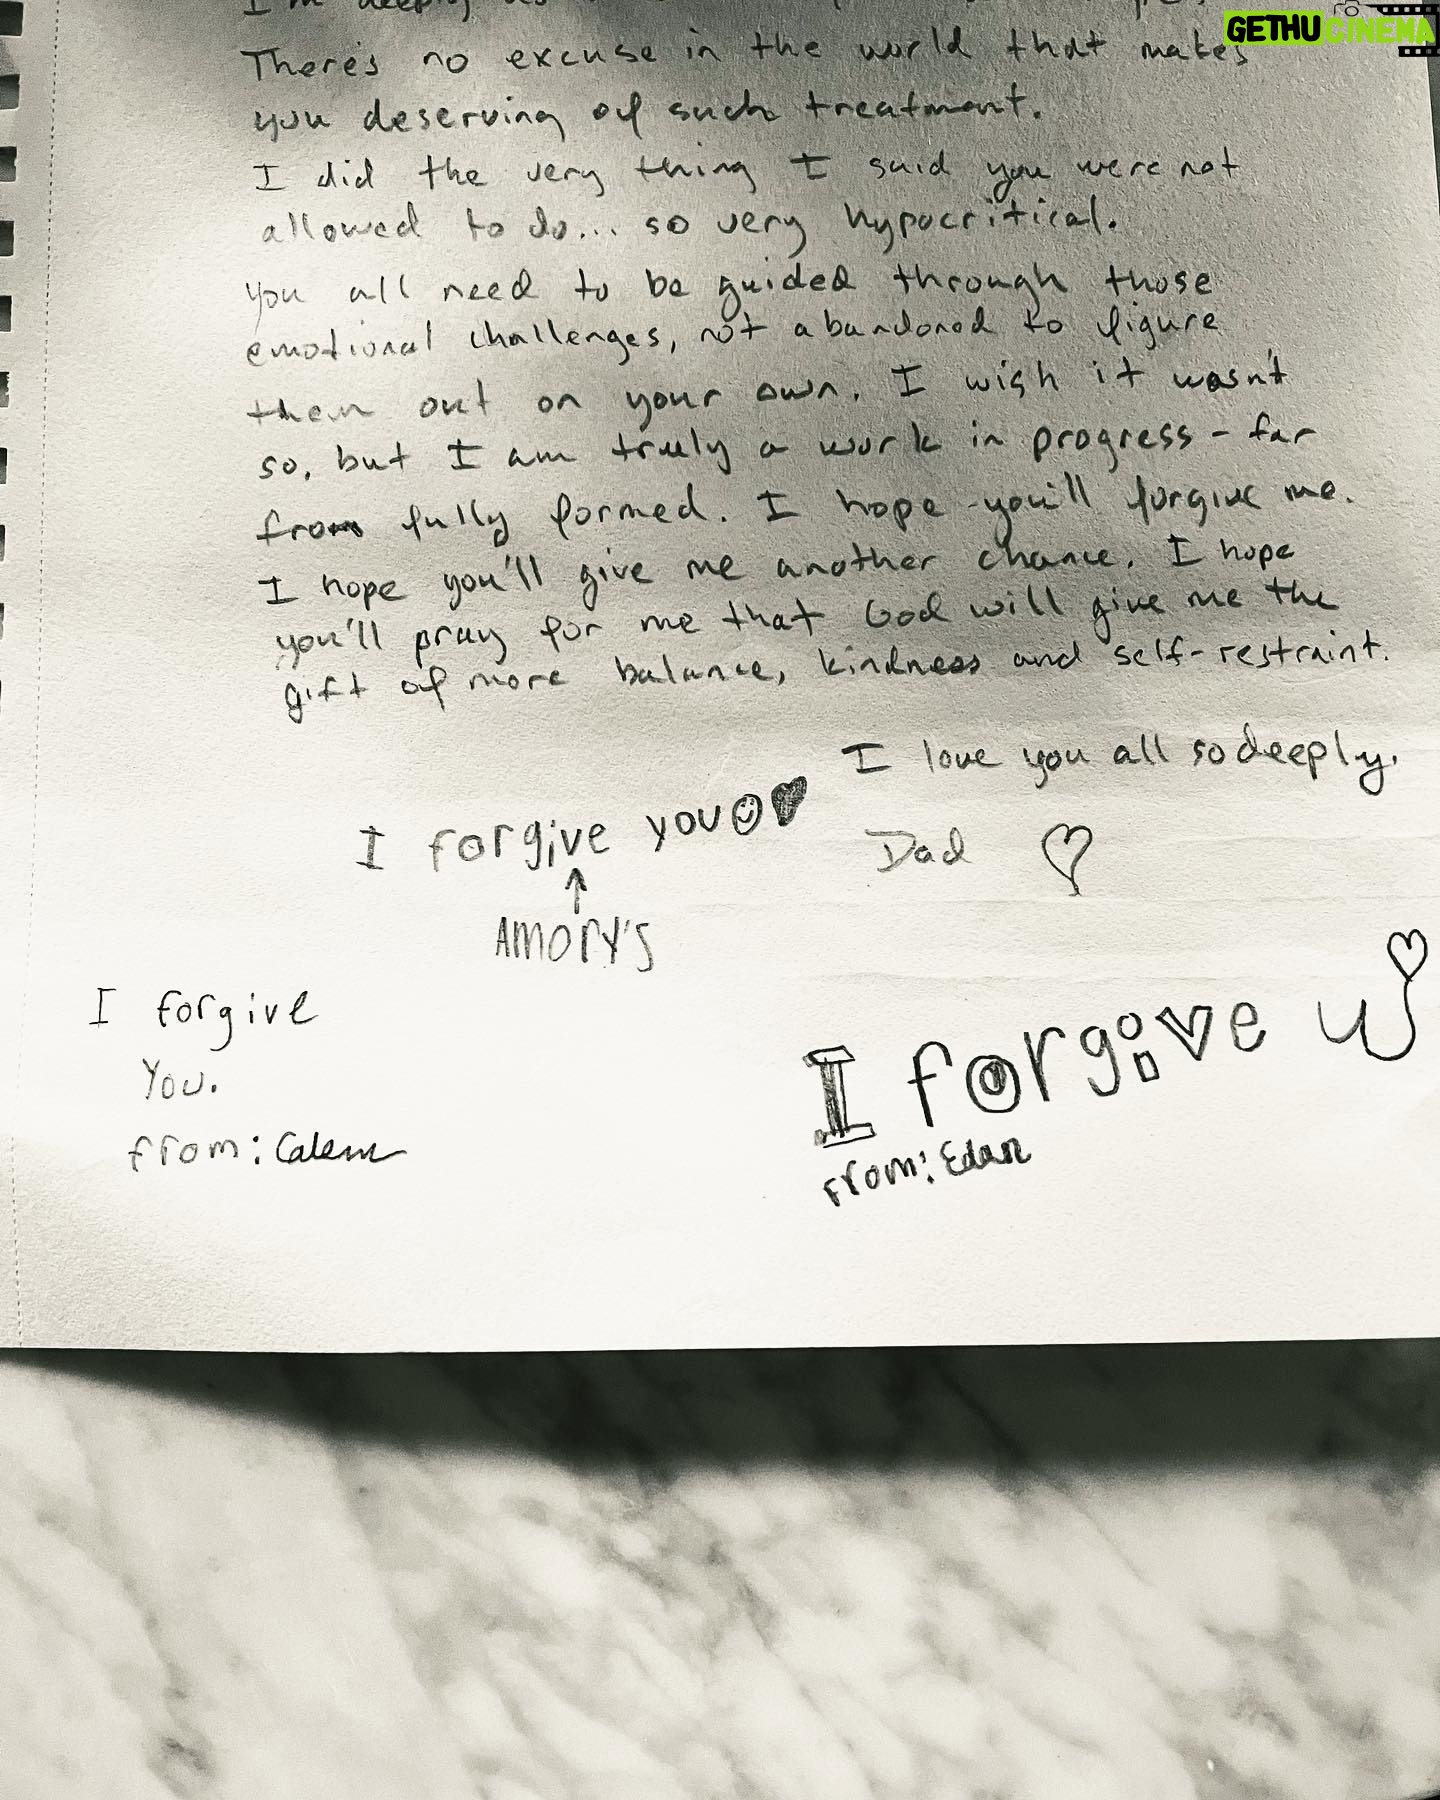 GETHUCINEMA
I'm deeply
There's no excuse in the world that makes
you deserving of such treatment.
I did the very thing I said you were not
allowed to do... so very hypocritical.
You all need to be guided through those
emotional challenges, not abandoned to figure
them out on your own. I wish it wasn't
so, but I am truly a work in progress - far
from fully formed. I hope you'll forgive me.
I hope you'll give me another chance. I hope
you'll pray for me that God will give me the
gift of more balance, kindness and self-restraint.
I love you all so deeply.
Dad ♡
I forgive you☺♥
↑
AMORY'S
I forgive
You.
from: Calem
I forgive u
From: Edan